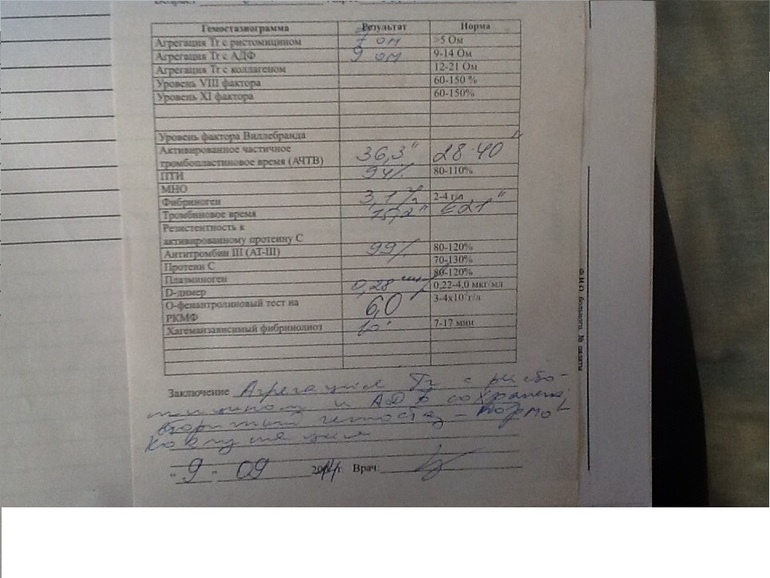 Гемостазиограмма Результат Норма
Агрегация Тг с ристомицином 7 ом >5 Ом
Агрегация Тг с АДФ 9 ом 9-14 Ом
Агрегация Тг с коллагеном 12-21 Ом
Уровень VIII фактора 60-150 %
Уровень XI фактора 60-150%
Уровень фактора Виллебранда
Активированное частичное
тромбопластиновое время (АЧТВ) 36,3" 28-40"
ПТИ 94% 80-110%
МНО
Фибриноген 3,1 г/л 2-4 г/л
Тромбиновое время 15,2" 21"
Резистентность к
активированному протеину С
Антитромбин III (АТ-III) 99% 80-120%
Протеин С 70-130%
Плазминоген 80-120%
D-димер 0,28 0,22-4,0 мкг/мл
О-фенантролиновый тест на
РКМФ 6,0 3-4х10 г/л
Хагеманзависимый фибринолиз 10' 7-17 мин
Заключение Агрегация Тг с ристо-
мицином и АДФ сохранена,
вторичный гемостаз - нормо-
коагуляция
"9" 09 2014г. Врач: